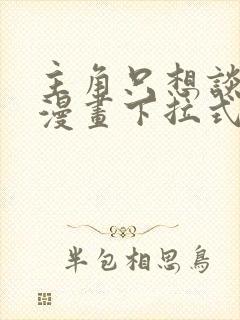 主角只想談
漫畫下拉式
半包相思鳥